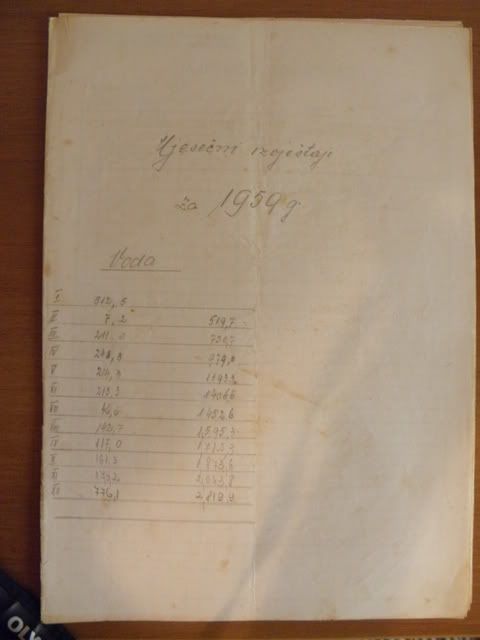 Mjesečni izvještaji
za 1959 g.
Voda
I 512,5
II 7,2 519,7
III 211,0 730,7
IV 248,3 979,0
V 214,3 1193,3
VI 213,3 1406,6
VII 46,0 1452,6
VIII 142,7 1595,3
IX 117,0 1712,3
X 161,3 1873,6
XI 170,2 2043,8
XII 776,1 2819,9
OLY